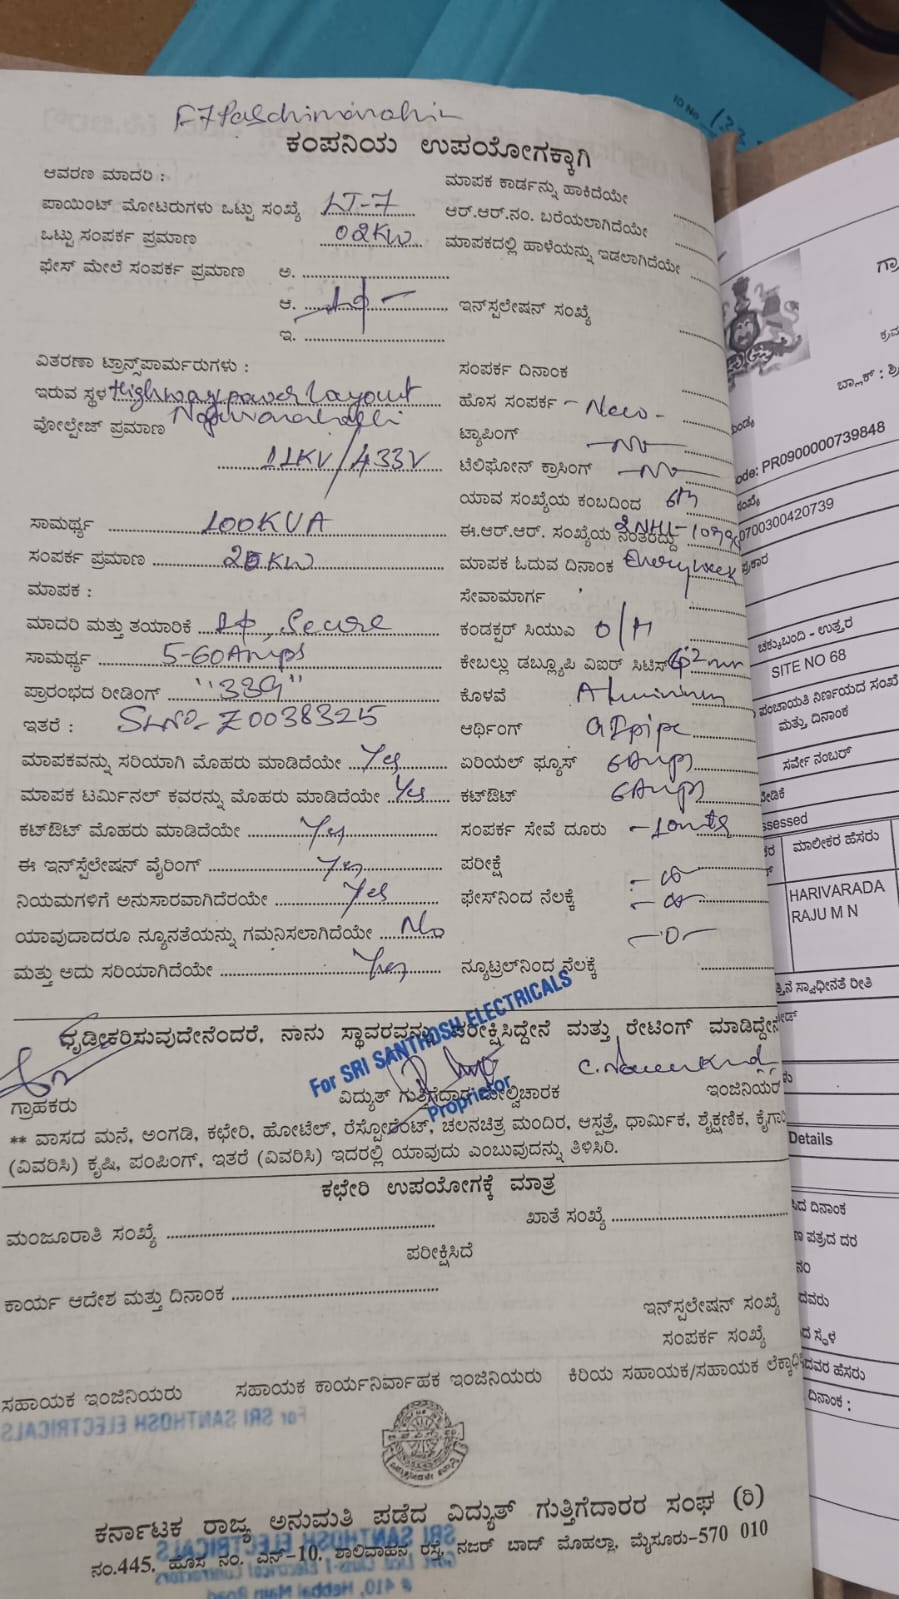 F7 Paschimavahin
ಕಂಪನಿಯ ಉಪಯೋಗಕ್ಕಾಗಿ
ಆವರಣ ಮಾದರಿ :
ಮಾಪಕ ಕಾರ್ಡನ್ನು ಹಾಕಿದೆಯೇ
ಪಾಯಿಂಟ್ ಮೋಟರುಗಳು ಒಟ್ಟು ಸಂಖ್ಯೆ LT-7
ಆರ್.ಆರ್.ನಂ. ಬರೆಯಲಾಗಿದೆಯೇ
ಒಟ್ಟು ಸಂಪರ್ಕ ಪ್ರಮಾಣ 02KW
ಮಾಪಕದಲ್ಲಿ ಹಾಳೆಯನ್ನು ಇಡಲಾಗಿದೆಯೇ
ಫೇಸ್ ಮೇಲೆ ಸಂಪರ್ಕ ಪ್ರಮಾಣ ಅ.
ಆ. 1φ - ಇನ್‌ಸ್ಪಲೇಷನ್ ಸಂಖ್ಯೆ
ಇ.
ವಿತರಣಾ ಟ್ರಾನ್ಸ್‌ಪಾರ್ಮರುಗಳು :
ಸಂಪರ್ಕ ದಿನಾಂಕ
ಇರುವ ಸ್ಥಳ Highway power Layout
ಹೊಸ ಸಂಪರ್ಕ - New -
ವೋಲ್ಟೇಜ್ ಪ್ರಮಾಣ
ಟ್ಯಾಪಿಂಗ್ -No-
11KV/433V
ಟೆಲಿಫೋನ್ ಕ್ರಾಸಿಂಗ್ -No-
ಯಾವ ಸಂಖ್ಯೆಯ ಕಂಬದಿಂದ 6m
ಸಾಮರ್ಥ್ಯ 100KVA
ಈ.ಆರ್.ಆರ್. ಸಂಖ್ಯೆಯ ನಂತರದ್ದು
ಸಂಪರ್ಕ ಪ್ರಮಾಣ KW
ಮಾಪಕ ಓದುವ ದಿನಾಂಕ Every week
ಮಾಪಕ :
ಸೇವಾಮಾರ್ಗ
ಮಾದರಿ ಮತ್ತು ತಯಾರಿಕೆ 1φ, Secure
ಕಂಡಕ್ಟರ್ ಸಿಯುಎ O/H
ಸಾಮರ್ಥ್ಯ 5-60Amps
ಕೇಬಲ್ಲು ಡಬ್ಲ್ಯೂಪಿ ಎಐರ್ ಸಿಟಿಸ್
ಪ್ರಾರಂಭದ ರೀಡಿಂಗ್ "339"
ಕೊಳವೆ Aluminium
ಇತರೆ : SLNo- Z0038325
ಆರ್ಥಿಂಗ್ GI pipe
ಮಾಪಕವನ್ನು ಸರಿಯಾಗಿ ಮೊಹರು ಮಾಡಿದೆಯೇ Yes
ಏರಿಯಲ್ ಫ್ಯೂಸ್ 6Amps
ಮಾಪಕ ಟರ್ಮಿನಲ್ ಕವರನ್ನು ಮೊಹರು ಮಾಡಿದೆಯೇ Yes
ಕಟ್‌ಔಟ್ 6Amps
ಕಟ್‌ಔಟ್ ಮೊಹರು ಮಾಡಿದೆಯೇ Yes
ಸಂಪರ್ಕ ಸೇವೆ ದೂರು
ಈ ಇನ್‌ಸ್ಪಲೇಷನ್ ವೈರಿಂಗ್ Yes
ಪರೀಕ್ಷೆ
ನಿಯಮಗಳಿಗೆ ಅನುಸಾರವಾಗಿದೆರಯೇ Yes
ಫೇಸ್‌ನಿಂದ ನೆಲಕ್ಕೆ - ∞ -
- ∞ -
ಯಾವುದಾದರೂ ನ್ಯೂನತೆಯನ್ನು ಗಮನಿಸಲಾಗಿದೆಯೇ No
-0-
ಮತ್ತು ಅದು ಸರಿಯಾಗಿದೆಯೇ Yes
ನ್ಯೂಟ್ರಲ್‌ನಿಂದ ನೆಲಕ್ಕೆ
ಧೃಡೀಕರಿಸುವುದೇನೆಂದರೆ, ನಾನು ಸ್ಥಾವರವನ್ನು ಪರೀಕ್ಷಿಸಿದ್ದೇನೆ ಮತ್ತು ರೇಟಿಂಗ್ ಮಾಡಿದ್ದೇನೆ
For SRI SANTHOSH ELECTRICALS
Proprietor
ಗ್ರಾಹಕರು
ವಿದ್ಯುತ್ ಗುತ್ತಿಗೆದಾರ/ಮೇಲ್ವಿಚಾರಕ
ಇಂಜಿನಿಯರ
** ವಾಸದ ಮನೆ, ಅಂಗಡಿ, ಕಛೇರಿ, ಹೋಟೆಲ್, ರೆಸ್ಟೋರೆಂಟ್, ಚಲನಚಿತ್ರ ಮಂದಿರ, ಆಸ್ಪತ್ರೆ, ಧಾರ್ಮಿಕ, ಶೈಕ್ಷಣಿಕ,
(ವಿವರಿಸಿ) ಕೃಷಿ, ಪಂಪಿಂಗ್, ಇತರೆ (ವಿವರಿಸಿ) ಇದರಲ್ಲಿ ಯಾವುದು ಎಂಬುವುದನ್ನು ತಿಳಿಸಿರಿ.
ಕಛೇರಿ ಉಪಯೋಗಕ್ಕೆ ಮಾತ್ರ
ಮಂಜೂರಾತಿ ಸಂಖ್ಯೆ
ಖಾತೆ ಸಂಖ್ಯೆ
ಪರೀಕ್ಷಿಸಿದೆ
ಕಾರ್ಯ ಆದೇಶ ಮತ್ತು ದಿನಾಂಕ
ಇನ್‌ಸ್ಪಲೇಷನ್ ಸಂಖ್ಯೆ
ಸಂಪರ್ಕ ಸಂಖ್ಯೆ
ಸಹಾಯಕ ಇಂಜಿನಿಯರು
ಸಹಾಯಕ ಕಾರ್ಯನಿರ್ವಾಹಕ ಇಂಜಿನಿಯರು
ಕಿರಿಯ ಸಹಾಯಕ/ಸಹಾಯಕ
For SRI SANTHOSH ELECTRICALS
ಕರ್ನಾಟಕ ರಾಜ್ಯ ಅನುಮತಿ ಪಡೆದ ವಿದ್ಯುತ್ ಗುತ್ತಿಗೆದಾರರ ಸಂಘ (ರಿ)
ನಂ.445. ಹೊಸ ನಂ. ಎನ್-10. ಶಾಲಿವಾಹನ ರಸ್ತೆ, ನಜರ್ ಬಾದ್ ಮೊಹಲ್ಲಾ, ಮೈಸೂರು-570 010
SRI SANTHOSH ELECTRICALS
# 410, Hebbal Main Road
ode: PR0900000739848
0700300420739
ಚಕ್ಕುಬಂದಿ - ಉತ್ತರ
SITE NO 68
ಪಂಚಾಯತಿ ನಿರ್ಣಯದ ಸಂಖೆ
ಮತ್ತು ದಿನಾಂಕ
ಸರ್ವೇ ನಂಬರ್
ssessed
ಮಾಲೀಕರ ಹೆಸರು
HARIVARADA
RAJU M N
ಸ್ವಾಧೀನತೆ ರೀತಿ
Details
ದಿನಾಂಕ
ಪತ್ರದ ದರ
ದವರು
ದವರ ಹೆಸರು
ದಿನಾಂಕ :